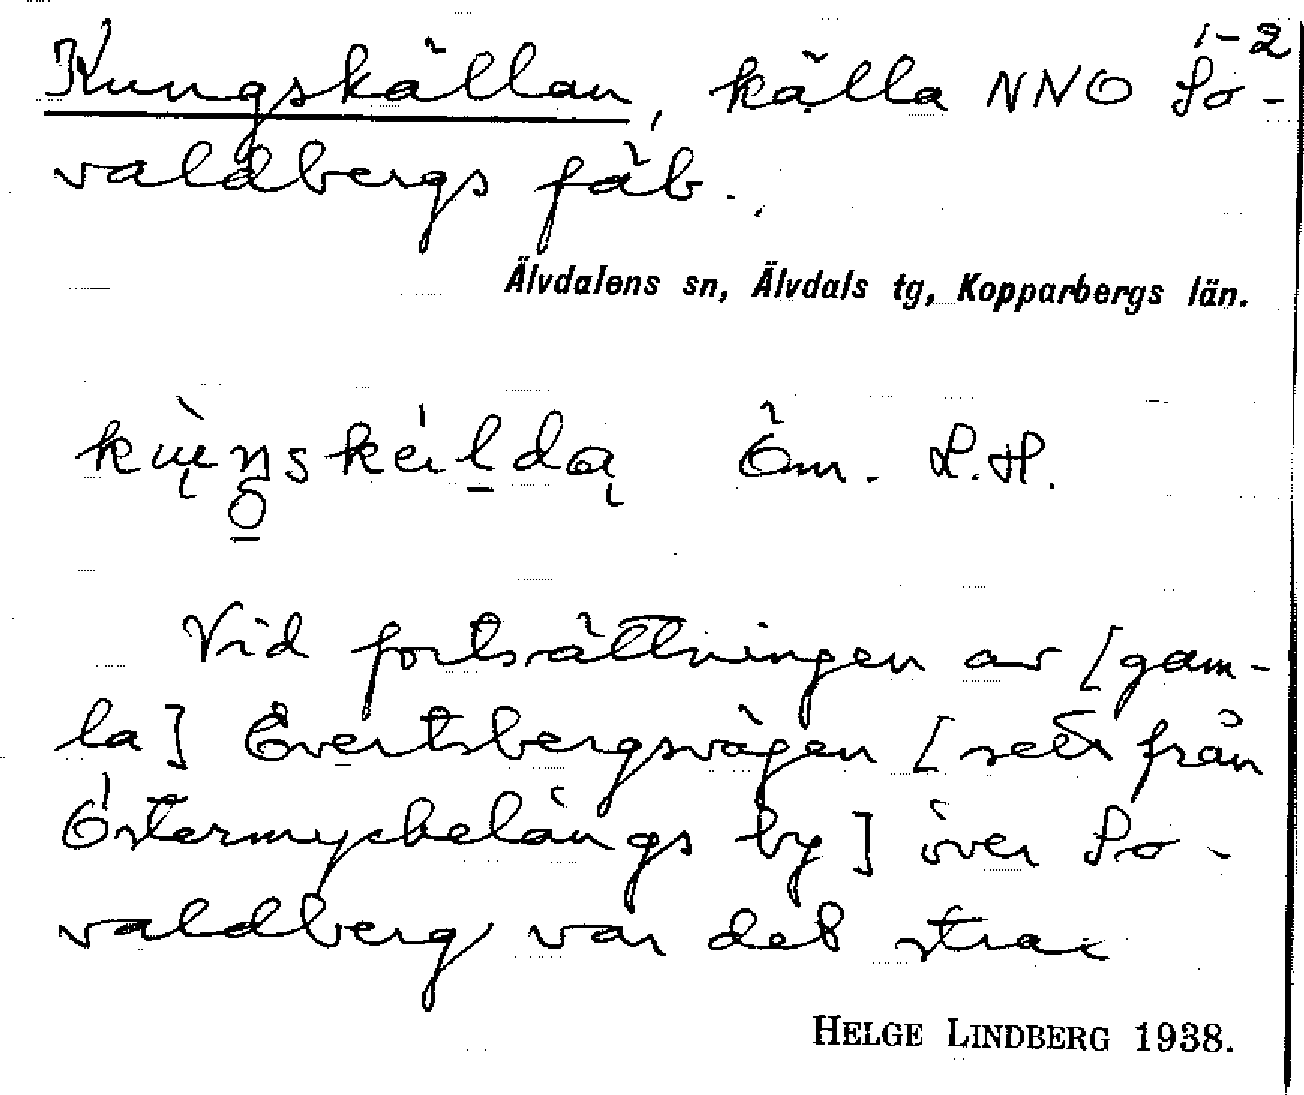 1-2
Kungskällan, källa NNO So-
valdbergs fäb.
Älvdalens sn, Älvdals tg, Kopparbergs län.
Öm. L.H.
Vid fortsättningen av [gam-
la] Evertsbergsvägen [sett från
Östermyckelängs by] över So-
valdberg var det strax
HELGE LINDBERG 1938.